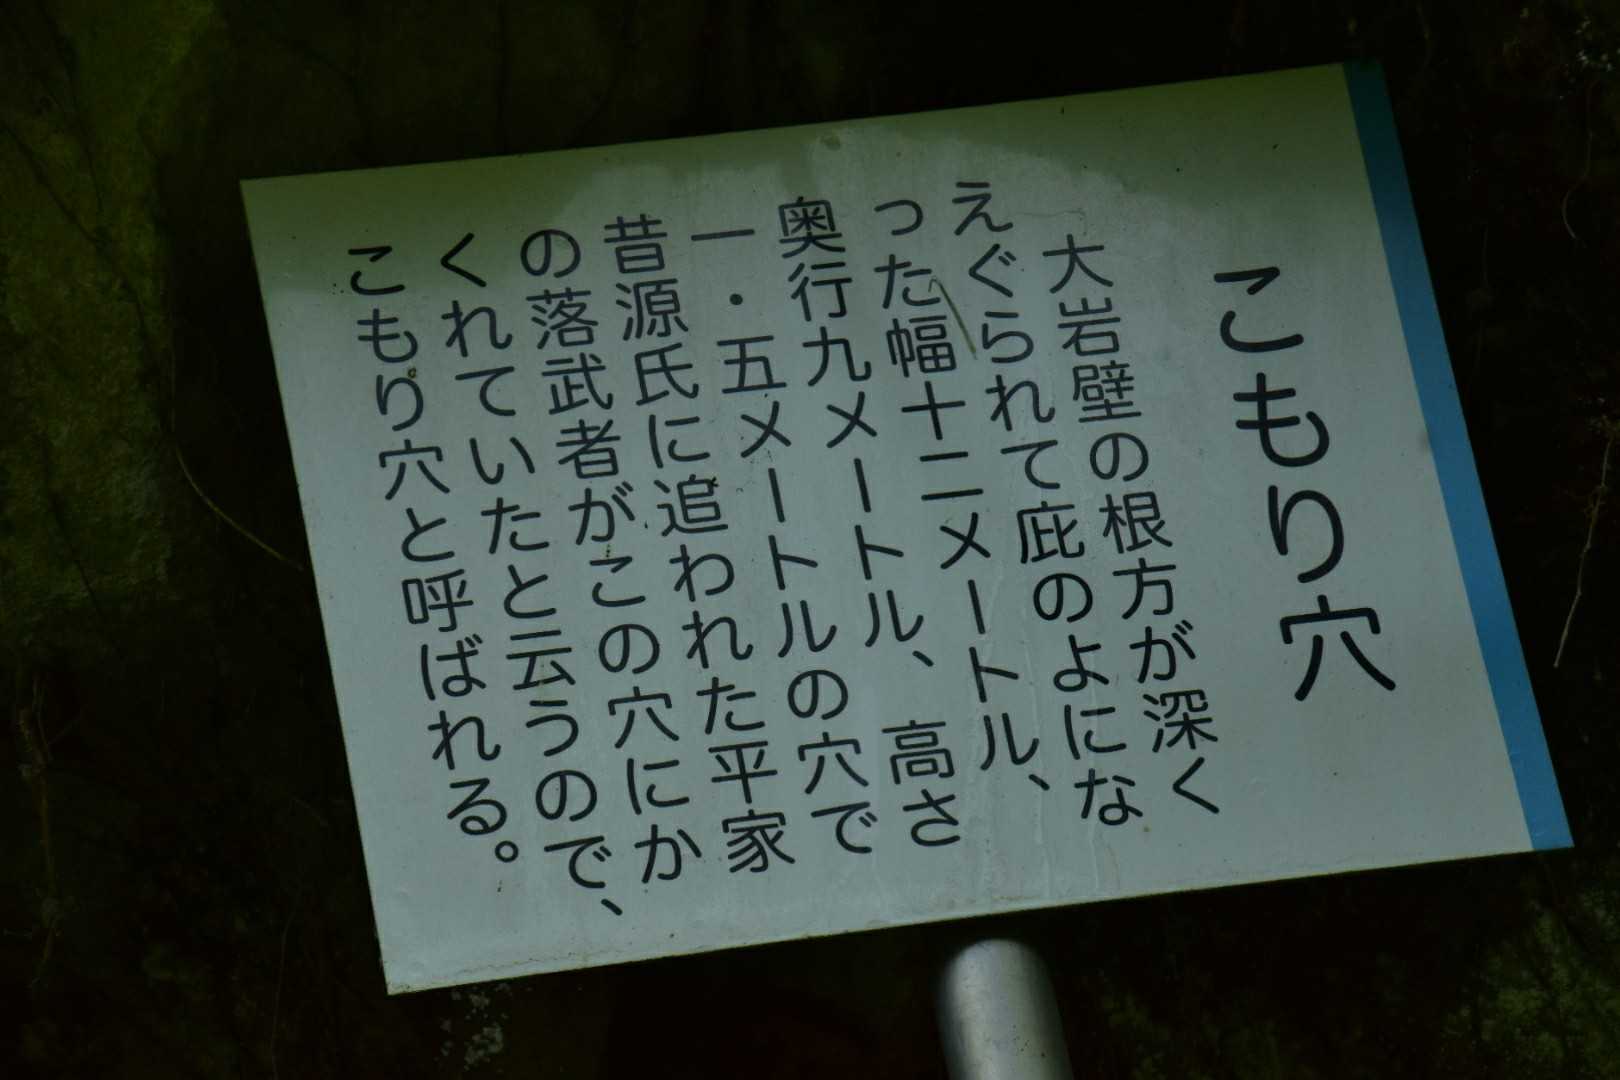 こもり穴
大岩壁の根方が深く
えぐられて庇のよにな
った幅十二メートル、
奥行九メートル、高さ
一・五メートルの穴で
昔源氏に追われた平家
の落武者がこの穴にか
くれていたと云うので、
こもり穴と呼ばれる。